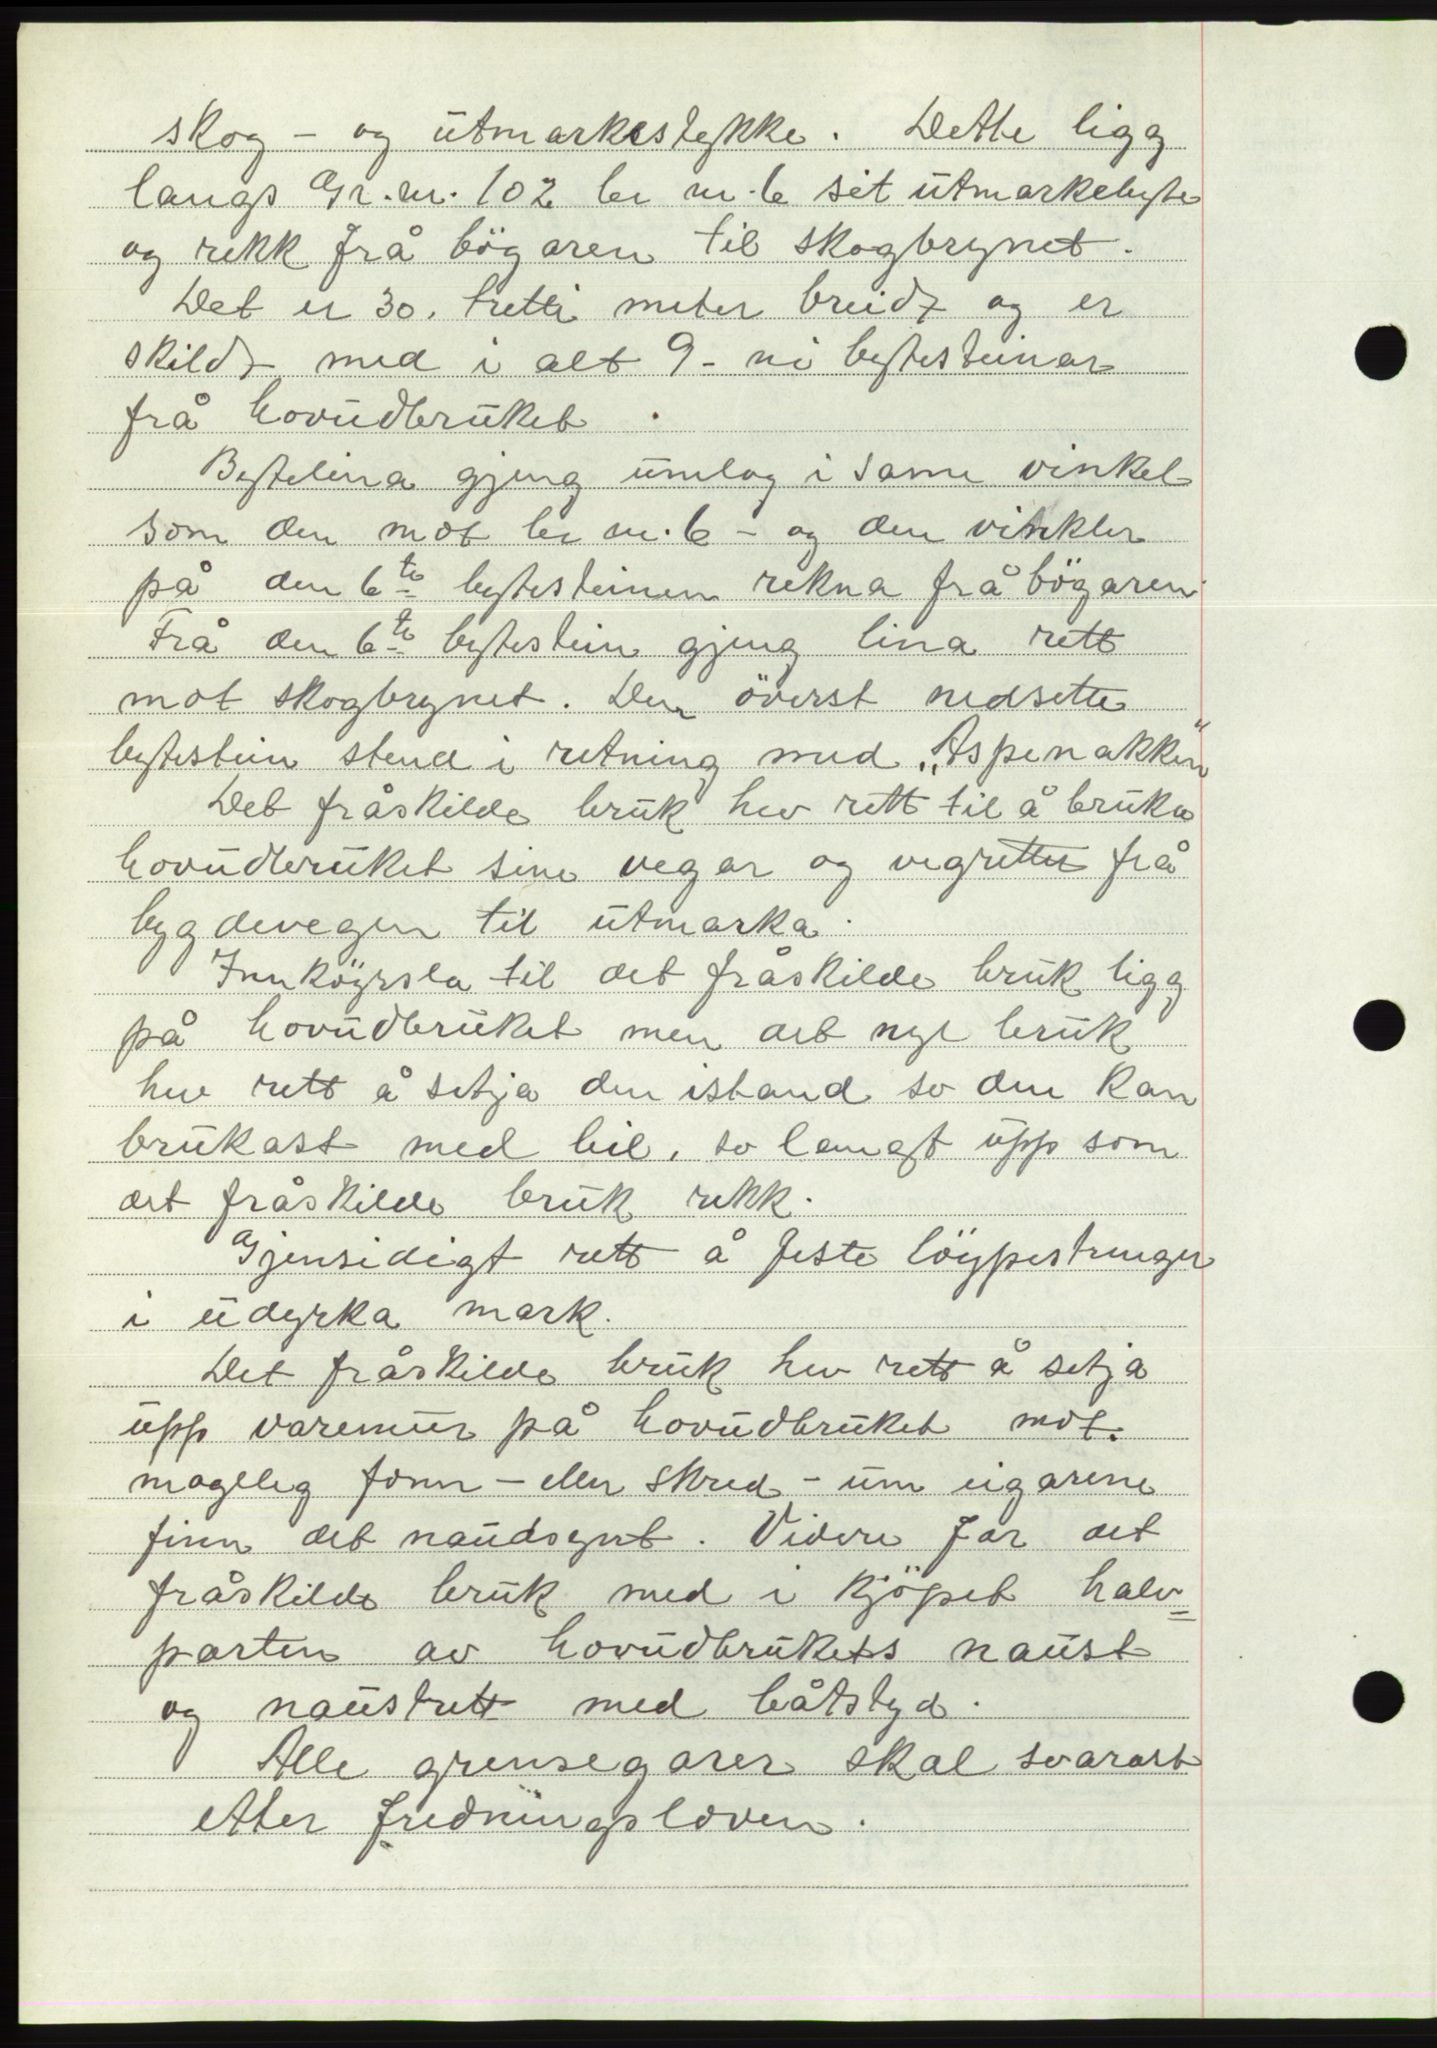 skog - og utmarksstykke. Dette ligg
langs Gr. nr. 102 br nr. 6 sit utmarkebyte
og rekk frå bögaren til skogbrynet.
Det er 30. tretti meter breidt og er
skildt med i alt 9 - ni bytesteinar
frå hovudbruket.
Bytelina gjeng umlag i same vinkel
som den mot br nr. 6 - og den vinklen
på den 6te bytesteinen rekna frå bögaren.
Frå den 6te bytestein gjeng lina rett
mot skogbrynet. Den överst nedsette
bytestein stend i retning med „Aspenakken"
Det fråskilde bruk hev rett til å bruka
hovudbruket sine vegar og vegretter frå
bygdevegen til utmarka.
Innköyrsla til det fråskilde bruk ligg
på hovudbruket men det nye bruk
hev rett å setja den istand so den kan
brukast med bil, so langt upp som
det fråskilde bruk rekk.
Gjensidigt rett å feste löypestrenger
i udyrka mark.
Det fråskilde bruk hev rett å setja
upp varemur på hovudbruket mot
mogeleg fonn - eller skred - um eigarene
finn det naudsynt. Videre far det
fråskilde bruk med i kjöpet halv=
parten av hovudbrukets naust
og naustrett med båtstyd.
Alle grensegarer skal svarast
etter fredningsloven.